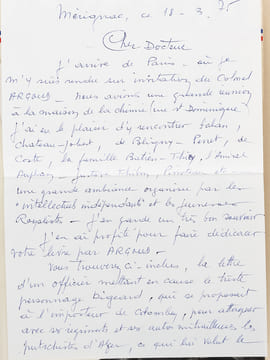 Mérignac, ce 18 - 3. 75
Cher Docteur
J'arrive de Paris - où je
m'y suis rendu sur invitation du Colonel
ARGOUD - nous avions une grande réunion
à la maison de la chimie (rue St Dominique).
J'ai eu le plaisir d'y rencontrer
Château-Jobert, de Bligny - Perret, de
la famille Bastien-Thiry, l'Amiral
Auphan -
une grande ambiance organisée par les
"intellectuels indépendants" et les jeunesses
Royalistes - J'en garde un très bon souvenir
J'en ai profité pour faire dédicacer
votre livre par ARGOUD -
Vous trouverez ci-inclus, la lettre
d'un officier mettant en cause le triste
personnage Bigeard, qui se proposait
à l'imposteur de Colombey, pour attaquer
avec ses régiments et ses auto mitrailleuses les
putschistes d'Alger, ce qui lui valut le